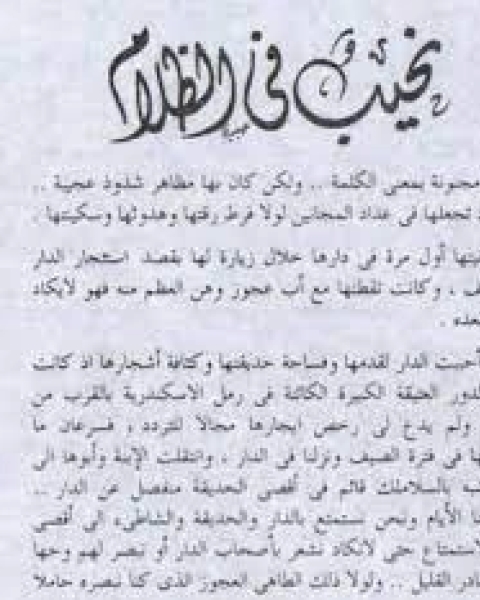 نحيب فى الظلام
مجنونة بمعنى الكلمة .. ولكن كان بها مظاهر شذوذ عجيبة ..
تجعلها فى عداد المجانين لولا فرط رقتها وهدوئها وسكينتها .
أول مرة فى دارها خلال زيارة لها بقصد استئجار الدار
، وكانت تقطنها مع أب عجوز وهن العظم منه فهو لايكاد
أحببت الدار لقدمها وفساحة حديقتها وكثافة أشجارها اذ كانت
الدور العتيقة الكبيرة الكائنة فى رمل الاسكندرية بالقرب من
ولم يدع لى رخص ايجارها مجالا للتردد ، فسرعان ما
فى فترة الصيف ونزلنا فى الدار ، وانتقلت الإبنة وأبوها الى
بالسلاملك قائم فى أقصى الحديقة منفصل عن الدار ..
الأيام ونحن نستمتع بالدار والحديقة والشاطىء الى أقصى
حتى لانكاد نشعر بأصحاب الدار أو نبصر لهم وجها
القليل .. ولولا ذلك الطاهى العجوز الذى كنا نبصره حاملا